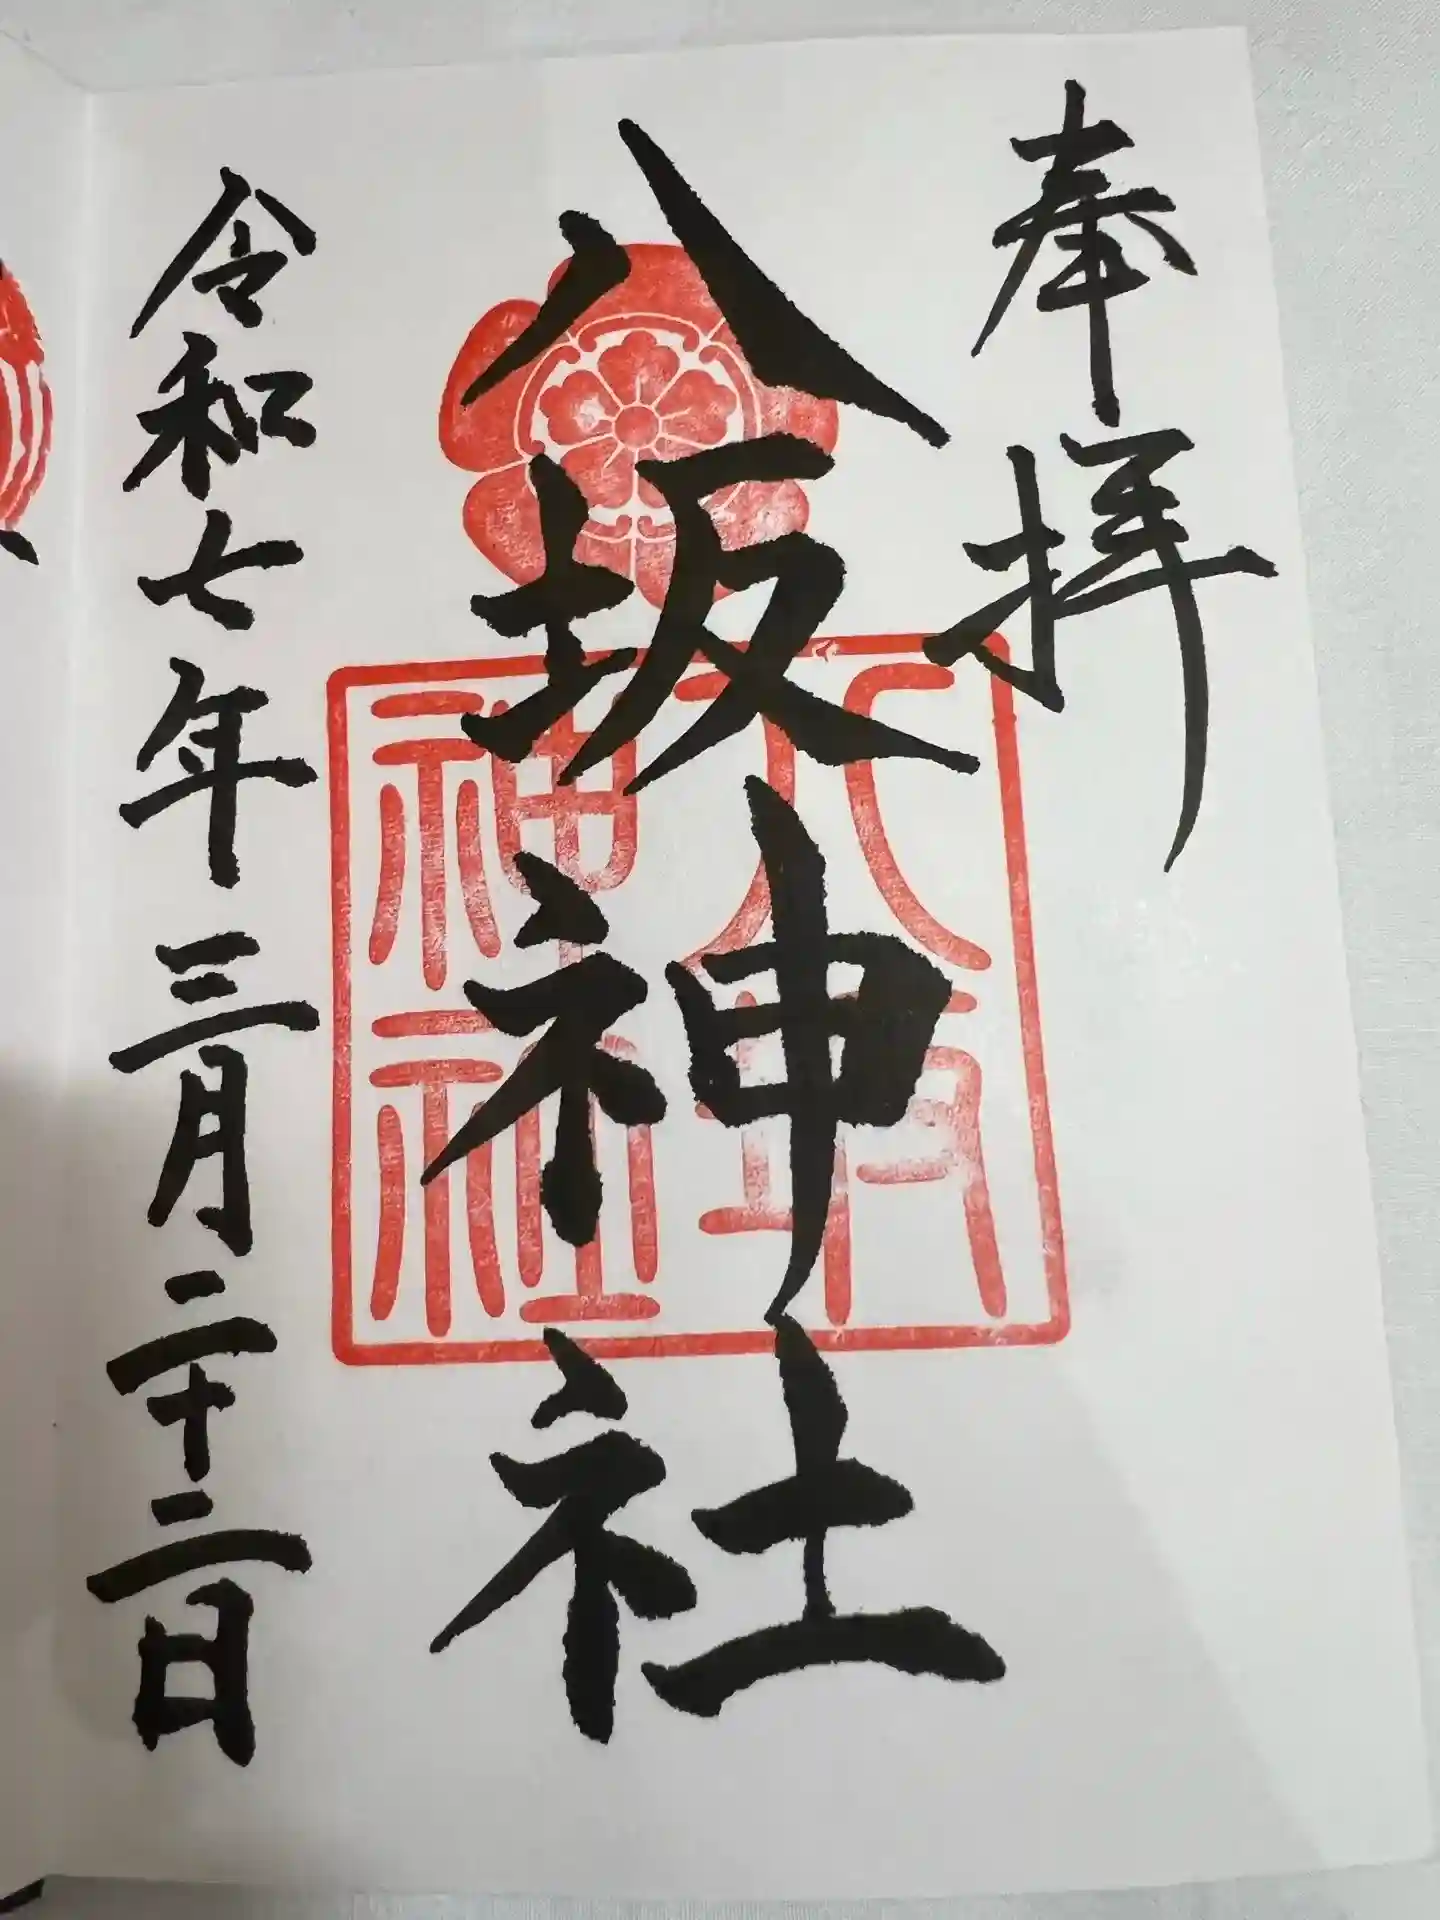 奉拝
八坂神社
八坂
神社
令和七年三月二十二日